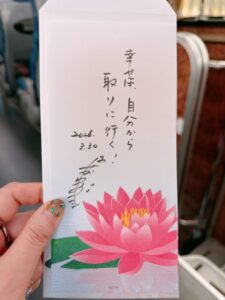 幸せは、自分から
取りに行く！
2026.
3.30